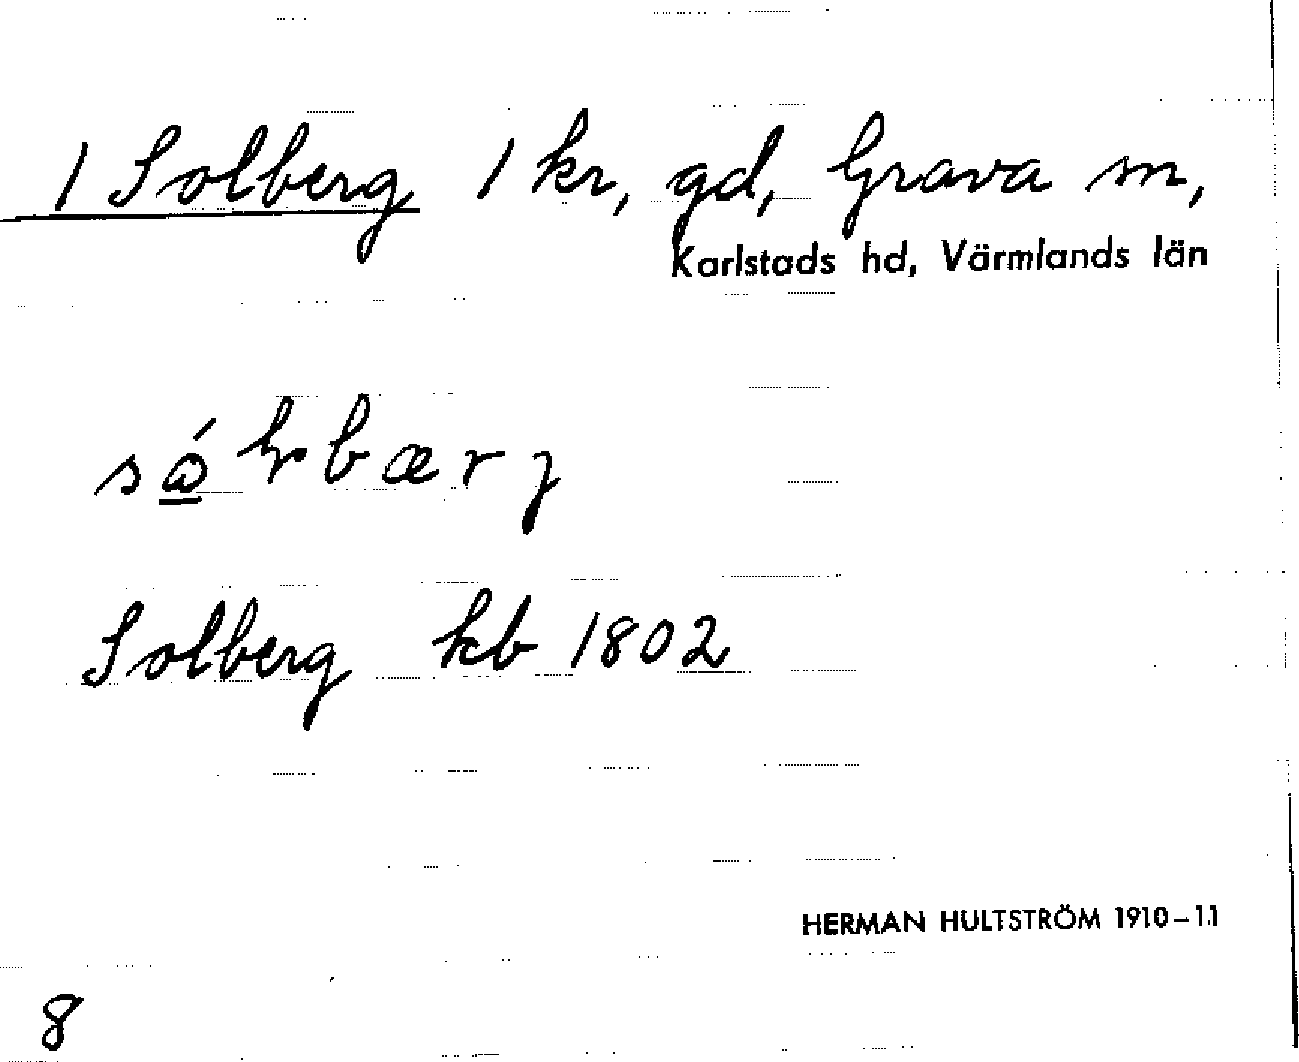 1 Solberg 1 kr, gd, Grava sn,
Karlstads hd, Värmlands län
Solberg kb 1802
HERMAN HULTSTRÖM 1910–11
8